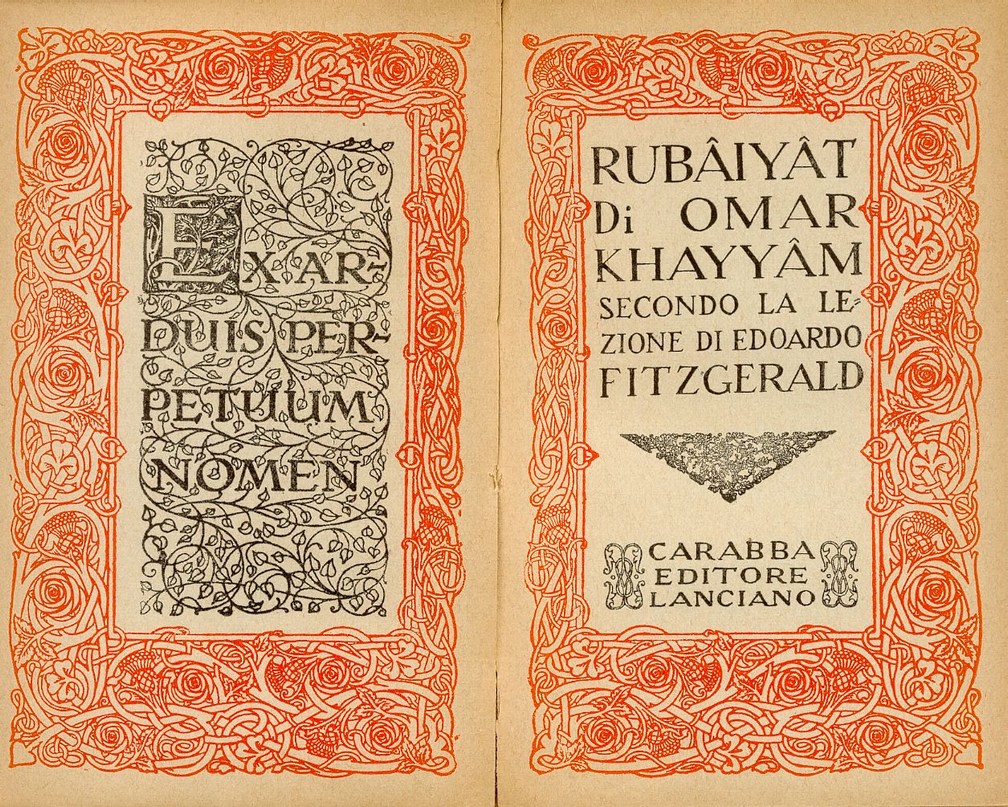 EX AR-
DUIS PER-
PETUUM
NOMEN
RUBÂIYÂT
Di OMAR
KHAYYÂM
SECONDO LA LE-
ZIONE DI EDOARDO
FITZGERALD
CARABBA
EDITORE
LANCIANO